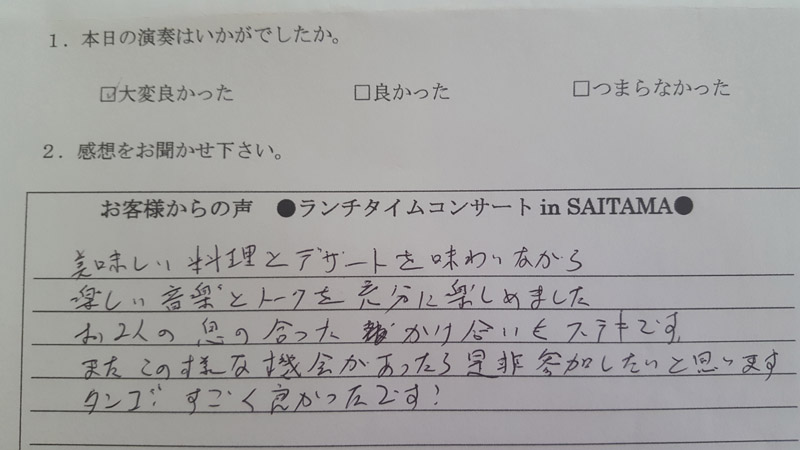 1．本日の演奏はいかがでしたか。
☑大変良かった □良かった □つまらなかった
2．感想をお聞かせ下さい。
お客様からの声 ●ランチタイムコンサート in SAITAMA●
美味しい料理とデザートを味わいながら
楽しい音楽とトークを充分に楽しめました
お2人の息の合ったかけ合いもステキです
またこの様な機会があったら是非参加したいと思います
タンゴ!すごく良かったです!